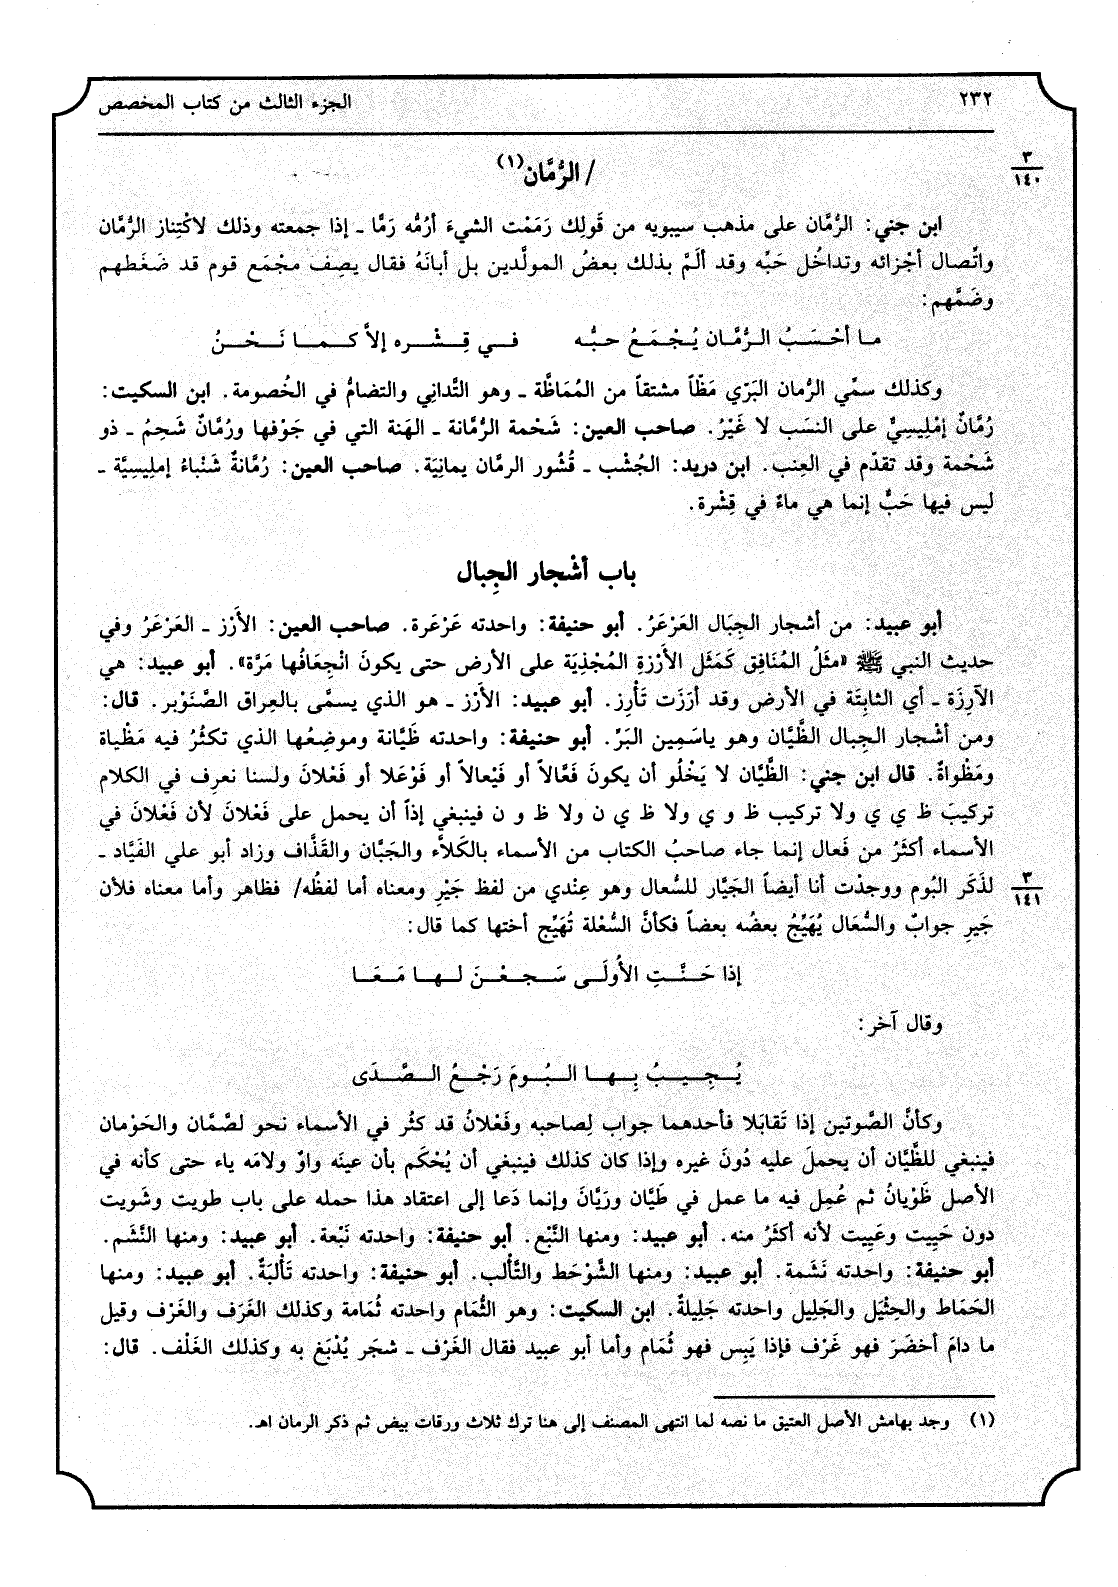 ٢٣٢
الجزء الثالث من كتاب المخصص
/ الرُّمَّان(١)
٣
١٤٠
ابن جني: الرُّمَّان على مذهب سيبويه من قَولِك رَمَمْت الشيءَ أرُمُّه رَمًّا ـ إذا جمعته وذلك لاكْتِناز الرُّمَّان
واتِّصال أجْزائه وتداخُل حَبِّه وقد ألَمَّ بذلك بعضُ المولَّدين بل أبانَهُ فقال يصِف مجْمَع قوم قد ضَغَطهم
وضَمَّهم:
ما أحْسَبُ الرُّمَّان يُجْمَعُ حبُّه في قِشْره إلاَّ كما نَحْنُ
وكذلك سمِّي الرُّمان البَرّي مَظّاً مشتقاً من المُمَاظَّة ـ وهو التَّدانِي والتضامُّ في الخُصومة. ابن السكيت:
رُمَّانٌ إمْلِيسِيٌّ على النسَب لا غَيْرُ. صاحب العين: شَحْمة الرُّمَّانة ـ الهَنة التي في جَوْفها ورُمَّانٌ شَحِمُ ـ ذو
شَحْمة وقد تقدّم في العِنب. ابن دريد: الجُشْب ـ قُشُور الرمَّان يمانِيَة. صاحب العين: رُمَّانةٌ شَنْباءُ إمليسِيَّة ـ
ليس فيها حَبٌّ إنما هي ماءٌ في قِشْرة.
باب أشْجار الجِبال
أبو عبيد: من أشجار الجِبَال العَرْعَرُ. أبو حنيفة: واحدته عَرْعَرة. صاحب العين: الأَرْز ـ العَرْعَرُ وفي
حديث النبي ﷺ «مثَلُ المُنافِق كَمَثَل الأَرْزةِ المُجْذِيَة على الأرض حتى يكونَ انْجِعَافُها مَرَّة». أبو عبيد: هي
الآرِزَة ـ أي الثابِتَة في الأرض وقد أرَزَت تَأْرِز. أبو عبيد: الأَرْز ـ هو الذي يسمَّى بالعِراق الصَّنَوْبر. قال:
ومن أشْجار الجِبال الظَّيَّان وهو ياسَمِين البَرِّ. أبو حنيفة: واحدته ظَيَّانة وموضِعُها الذي تكثُرُ فيه مَظْياة
ومَظْواةٌ. قال ابن جني: الظَّيَّان لا يَخْلُو أن يكونَ فَعَّالاً أو فَيْعالاً أو فَوْعَلا أو فَعْلانَ ولسنا نعرِف في الكلام
تركيبَ ظ ي ي ولا تركيب ظ و ي ولا ظ ي ن ولا ظ و ن فينبغي إذاً أن يحمل على فَعْلانَ لأن فَعْلانَ في
الأسماء أكثَرُ من فَعال إنما جاء صاحبُ الكتاب من الأسماء بالكَلاَّء والجَبَّان والقَذَّاف وزاد أبو علي الفَيَّاد ـ
لذَكَر البُوم ووجدْت أنا أيضاً الجَيَّار للسُّعال وهو عِنْدي من لفظ جَيْرِ ومعناه أما لفظُه/ فظاهر وأما معناه فلأن
٣
١٤١
جَيرِ جوابٌ والسُّعَال يُهَيِّجُ بعضُه بعضاً فكأنَّ السُّعْلة تُهَيِّج أختها كما قال:
إذا حَنَّتِ الأُولَى سَجعْنَ لها مَعَا
وقال آخر:
يُجِيبُ بِها البُومَ رَجْعُ الصَّدَى
وكأنَّ الصَّوتين إذا تَقابَلا فأحدهما جواب لِصاحبه وفَعْلانُ قد كثُر في الأسماء نحو لصَّمَّان والحَوْمان
فينبغي للظَّيَّان أن يحملَ عليه دُونَ غيره وإذا كان كذلك فينبغي أن يُحْكَم بأن عينَه واوٌ ولامَه ياء حتى كأنه في
الأصل ظَوْيانُ ثم عُمِل فيه ما عمل في طَيَّان ورَيَّانَ وإنما دَعا إلى اعتقاد هذا حمله على باب طويت وشَويت
دون حَيِيت وعَيِيت لأنه أكثَرُ منه. أبو عبيد: ومنها النَّبْع. أبو حنيفة: واحدته نَبْعة. أبو عبيد: ومنها النَّشَم.
أبو حنيفة: واحدته نَشَمة. أبو عبيد: ومنها الشَّوْحَط والتَّأْلب. أبو حنيفة: واحدته تَأْلبَةٌ. أبو عبيد: ومنها
الحَمَاط والحِثْيَل والجَلِيل واحدته جَلِيلةٌ. ابن السكيت: وهو الثُّمَام واحدته ثُمَامة وكذلك الغَرَف والغَرْف وقيل
ما دامَ أخضَرَ فهو غَرْف فإذا يَبِس فهو ثُمَام وأما أبو عبيد فقال الغَرْف ـ شجَر يُدْبَغ به وكذلك الغَلْف. قال:
(١) وجد بهامش الأصل العتيق ما نصه لما انتهى المصنف إلى هنا ترك ثلاث ورقات بيض ثم ذكر الرمان اهـ.